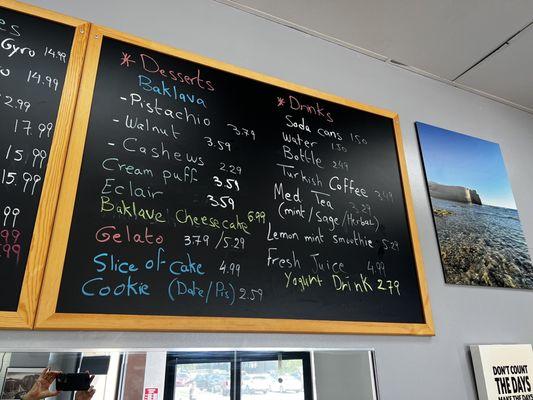 es
Gyro 14.99
o 14.99
2.99
17.99
15.99
15.99
.99
.99
.99
* Desserts
Baklava
-Pistachio 3.79
-Walnut 3.59
-Cashews 2.29
Cream puff 3.59
Eclair 3.59
Baklave Cheesecake 6.99
Gelato 3.79/5.29
Slice of Cake 4.99
Cookie (Date/Pis) 2.59
* Drinks
Soda cans 1.50
Water 1.50
Bottle 2.49
Turkish Coffee 3.49
Med Tea 3.29
(mint/Sage/Herbal)
Lemon mint smoothie 5.29
Fresh Juice 4.99
Yogurt Drink 2.79
DON'T COUNT
THE DAYS
MAKE THE DAYS